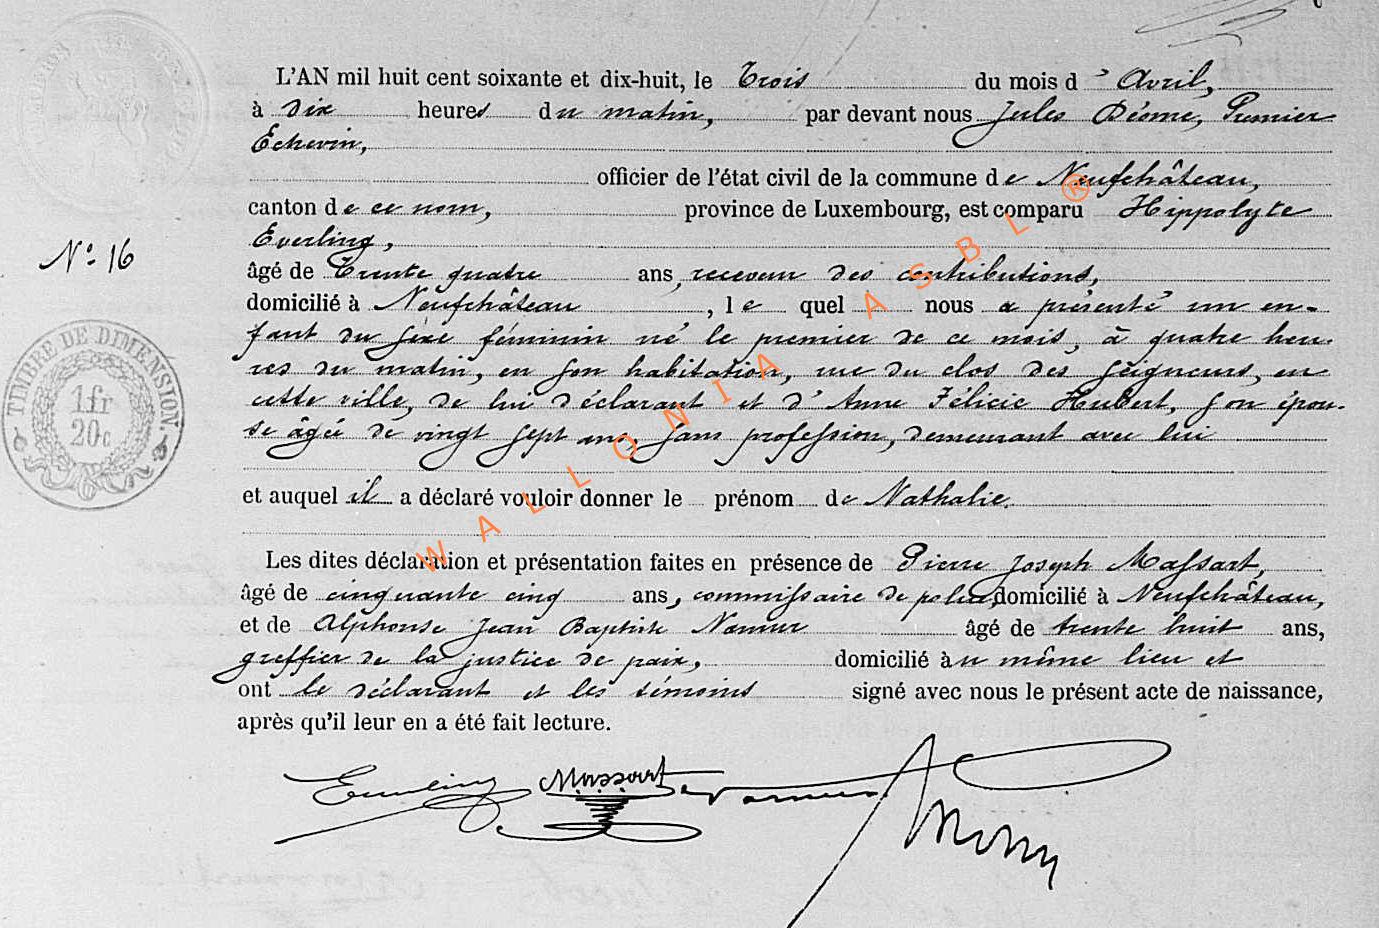 L'AN mil huit cent soixante et dix-huit, le Trois du mois d'Avril,
à Dix heures du matin, par devant nous Jules Premier
Echevin,
officier de l'état civil de la commune de Neufchâteau,
canton de ce nom, province de Luxembourg, est comparu Hippolyte
Everling,
N° 16
âgé de Trente quatre ans, receveur des contributions,
domicilié à Neufchâteau, le quel nous a présenté un en-
fant du sexe féminin né le premier de ce mois, à quatre heu-
res du matin, en son habitation, rue du clos des seigneurs, en
cette ville, de lui déclarant et d'Anne Félicie Hubert, son épou-
se âgée de vingt sept ans, sans profession, demeurant avec lui
et auquel il a déclaré vouloir donner le prénom de Nathalie.
Les dites déclaration et présentation faites en présence de Pierre Joseph Massart,
âgé de cinquante cinq ans, commissaire de police, domicilié à Neufchâteau,
et de Alphonse Jean Baptiste Namur âgé de trente huit ans,
greffier de la justice de paix, domicilié au même lieu et
ont le déclarant et les témoins signé avec nous le présent acte de naissance,
après qu'il leur en a été fait lecture.
Everling Massart Namur
TIMBRE DE DIMENSION
1fr
20c
WALLONIA ASBL ®